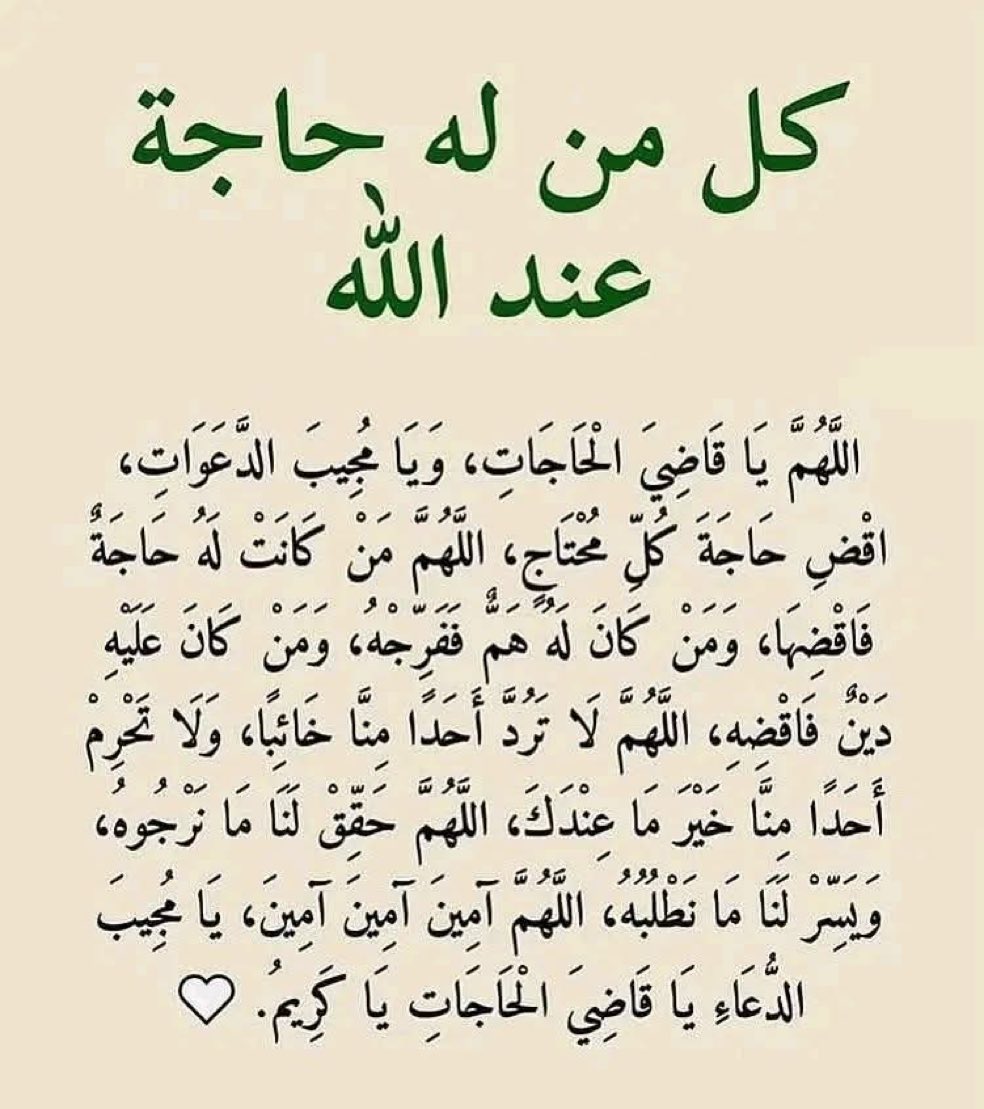 كل من له حاجة
عند الله
اللَّهُمَّ يَا قَاضِيَ الْحَاجَاتِ، وَيَا مُجِيبَ الدَّعَوَاتِ،
اقْضِ حَاجَةَ كُلِّ مُحْتَاجٍ، اللَّهُمَّ مَنْ كَانَتْ لَهُ حَاجَةٌ
فَاقْضِهَا، وَمَنْ كَانَ لَهُ هَمٌّ فَفَرِّجْهُ، وَمَنْ كَانَ عَلَيْهِ
دَيْنٌ فَاقْضِهِ، اللَّهُمَّ لَا تَرُدَّ أَحَدًا مِنَّا خَائِبًا، وَلَا تَحْرِمْ
أَحَدًا مِنَّا خَيْرَ مَا عِنْدَكَ، اللَّهُمَّ حَقِّقْ لَنَا مَا نَرْجُوهُ،
وَيَسِّرْ لَنَا مَا نَطْلُبُهُ، اللَّهُمَّ آمِينَ آمِينَ آمِينَ، يَا مُجِيبَ
الدُّعَاءِ يَا قَاضِيَ الْحَاجَاتِ يَا كَرِيمُ.